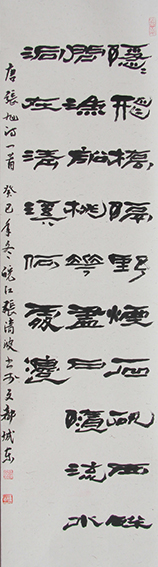 隱〻飛橋隔野煙石磯西畔
問漁船桃花盡日隨流水
洞在清溪何處邊
唐張旭詩一首 癸巳年冬皖江張清波書於文都城東